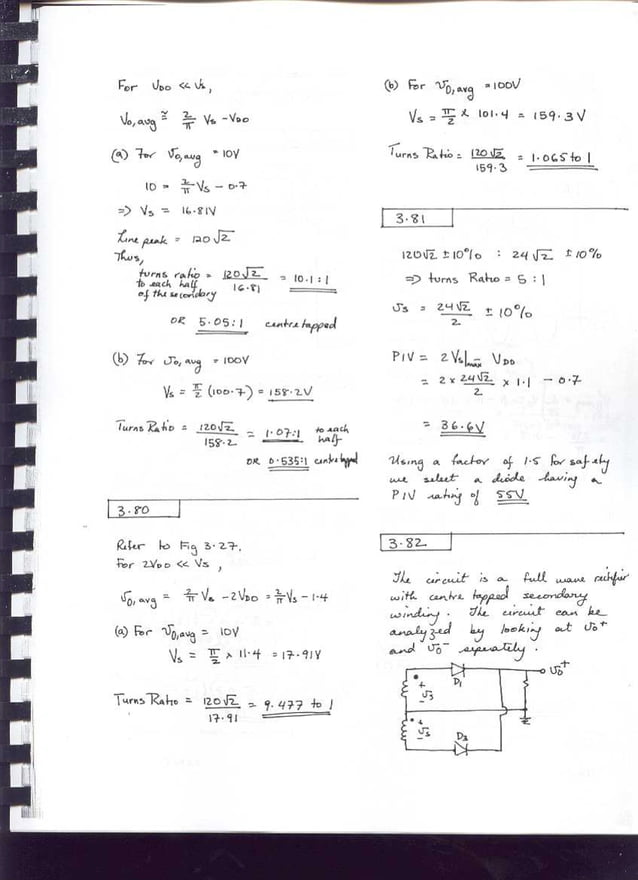 For V_D0 << V_s,
V_o,avg ≅ 2/π V_s - V_D0
(a) For υ_o,avg = 10V
10 = 2/π V_s - 0.7
⇒ V_s = 16.81V
Line peak = 120√2
Thus,
turns ratio = 120√2/16.81 = 10.1:1
to each half
of the secondary
OR 5.05:1 centre tapped
(b) For υ_o,avg = 100V
V_s = π/2 (100.7) = 158.2V
Turns Ratio = 120√2/158.2 = 1.07:1 to each half
OR 0.535:1 centre tapped
3.80
Refer to Fig 3.27.
For 2V_D0 << V_s,
υ_o,avg = 2/π V_s - 2V_D0 = 2/π V_s - 1.4
(a) For υ_o,avg = 10V
V_s = π/2 × 11.4 = 17.91V
Turns Ratio = 120√2/17.91 = 9.477 to 1
(b) For υ_o,avg = 100V
V_s = π/2 × 101.4 = 159.3V
Turns Ratio = 120√2/159.3 = 1.065 to 1
3.81
120√2 ±10% : 24√2 ±10%
⇒ turns Ratio = 5:1
υ_s = 24√2/2 ±10%
PIV = 2V_s|max - V_D0
= 2 × 24√2/2 × 1.1 - 0.7
= 36.6V
Using a factor of 1.5 for safety
we select a diode having a
PIV rating of 55V
3.82
The circuit is a full wave rectifier
with centre tapped secondary
winding. The circuit can be
analyzed by looking at υ_o⁺
and υ_o⁻ seperately.
+ υ_s - D1 υ_o⁺
+ υ_s - D3